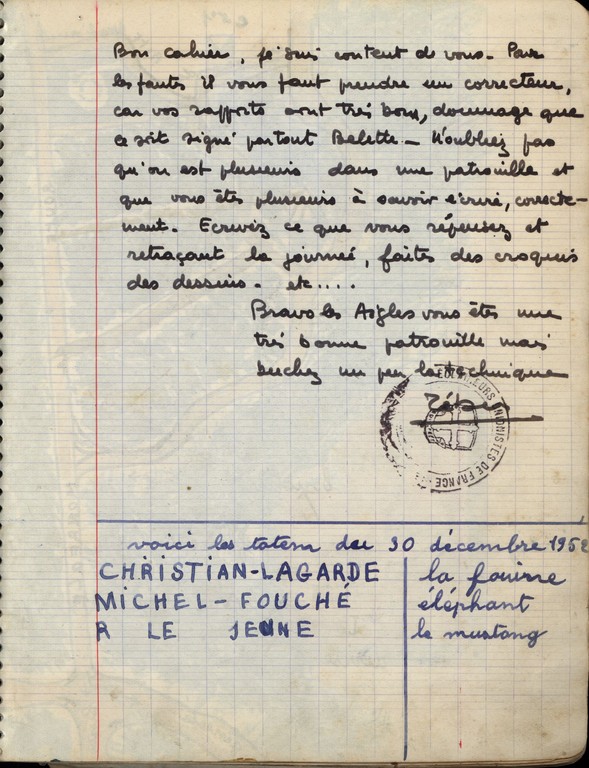 Bon cahier, je suis content de vous - Pour
les fautes il vous faut prendre un correcteur,
car vos rapports sont très bons, dommage que
ce soit signé partout Belette - N'oubliez pas
qu'on est plusieurs dans une patrouille et
que vous êtes plusieurs à savoir écrire, correcte-
ment. Ecrivez ce que vous pensez et
retraçant la journée, faites des croquis
des dessins. etc....
Bravo les Aigles vous êtes une
très bonne patrouille mais
un peu la technique
ECLAIREURS UNIONISTES DE FRANCE
voici les totem du 30 décembre 1952
CHRISTIAN-LAGARDE la fouine
MICHEL-FOUCHÉ éléphant
R LE JEUNE le mustang